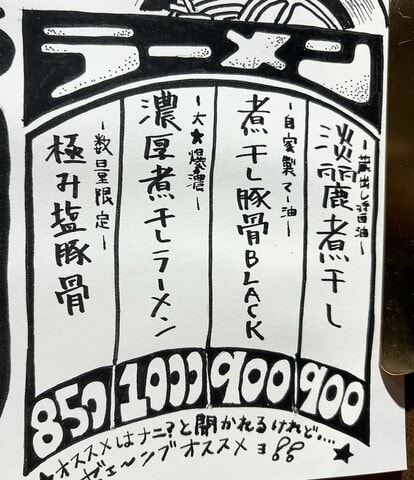 ラーメン
-蔵出し醤油-
淡麗煮干し
900
-自家製マー油-
煮干し豚骨BLACK
900
-大★爆濃-
濃厚煮干しラーメン
1000
-数量限定-
極み塩豚骨
850
オススメはナニ?と開かれるけれど…
ゼェ〜ンブオススメヨ!!